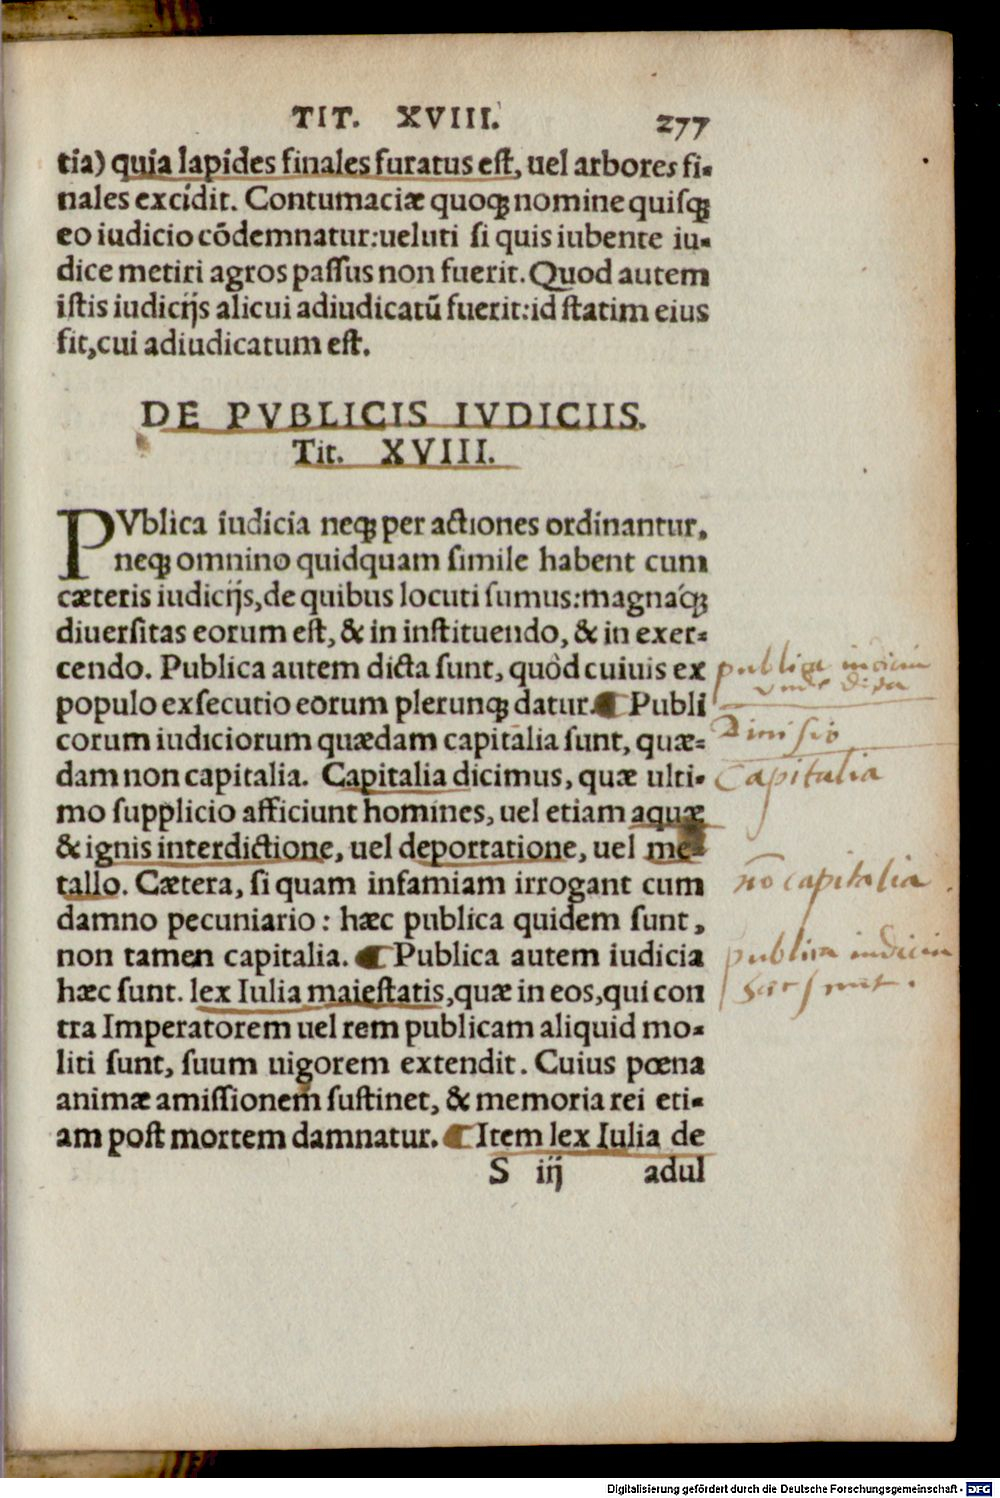 TIT. XVIII. 277
tia) quia lapides finales furatus est, uel arbores fi-
nales excidit. Contumaciæ quoqꝫ nomine quisqꝫ
eo iudicio cõdemnatur: ueluti si quis iubente iu-
dice metiri agros passus non fuerit. Quod autem
istis iudicijs alicui adiudicatũ fuerit: id statim eius
fit, cui adiudicatum est.
DE PVBLICIS IVDICIIS.
Tit. XVIII.
PVblica iudicia neqꝫ per actiones ordinantur,
neqꝫ omnino quidquam simile habent cum
cæteris iudicijs, de quibus locuti sumus: magnáqꝫ
diuersitas eorum est, & in instituendo, & in exer-
cendo. Publica autem dicta sunt, quòd cuiuis ex
publica iudicia
vnde dicta
populo exsecutio eorum plerunqꝫ datur. ¶ Publi
corum iudiciorum quædam capitalia sunt, quæ-
Diuisio
dam non capitalia. Capitalia dicimus, quæ ulti-
Capitalia
mo supplicio afficiunt homines, uel etiam aquæ
& ignis interdictione, uel deportatione, uel me-
tallo. Cætera, si quam infamiam irrogant cum
nõ capitalia
damno pecuniario: hæc publica quidem sunt,
non tamen capitalia. ¶ Publica autem iudicia
publica iudicia
hæc sunt. lex Iulia maiestatis, quæ in eos, qui con
hæc sunt.
tra Imperatorem uel rem publicam aliquid mo-
liti sunt, suum uigorem extendit. Cuius pœna
animæ amissionem sustinet, & memoria rei eti-
am post mortem damnatur. ¶ Item lex Iulia de
S iij adul
Digitalisierung gefördert durch die Deutsche Forschungsgemeinschaft - DFG